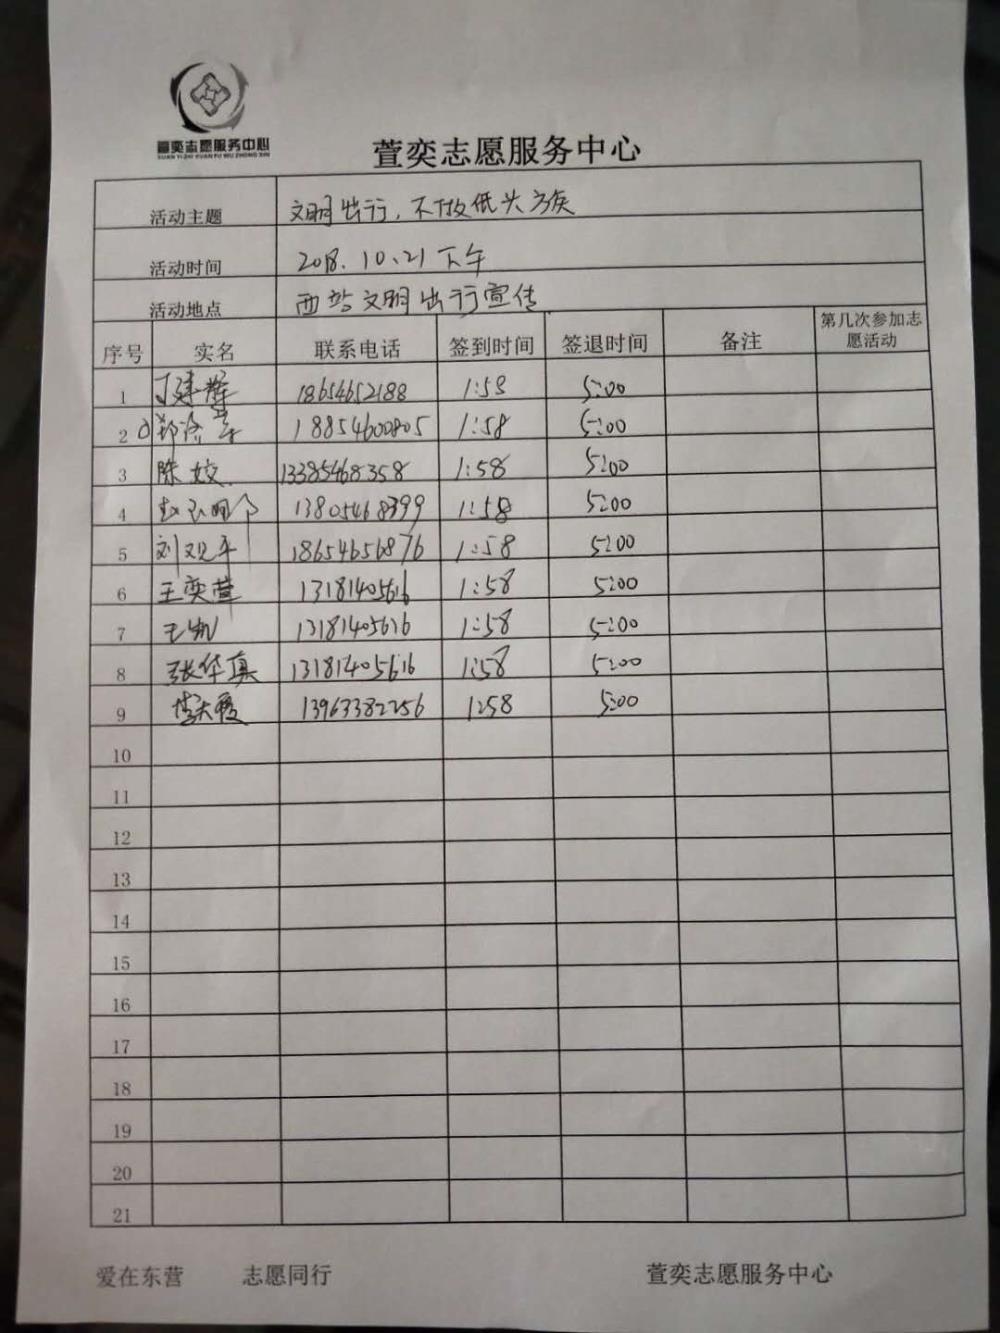 萱奕志愿服务中心
XUAN YI ZHI YUAN FU WU ZHONG XIN
萱奕志愿服务中心
活动主题 文明出行，不做低头族
活动时间 2018.10.21下午
活动地点 西站文明出行宣传
序号 实名 联系电话 签到时间 签退时间 备注 第几次参加志愿活动
1 丁建辉 18654652188 1:58 5:00
2 郑 18854600805 1:58 5:00
3 陈姣 13385468358 1:58 5:00
4 赵 13805468399 1:58 5:00
5 刘观平 18654656876 1:58 5:00
6 王奕萱 13181405616 1:58 5:00
7 王凯 13181405616 1:58 5:00
8 张华真 13181405616 1:58 5:00
9 李爱 13963382256 1:58 5:00
10
11
12
13
14
15
16
17
18
19
20
21
爱在东营 志愿同行 萱奕志愿服务中心